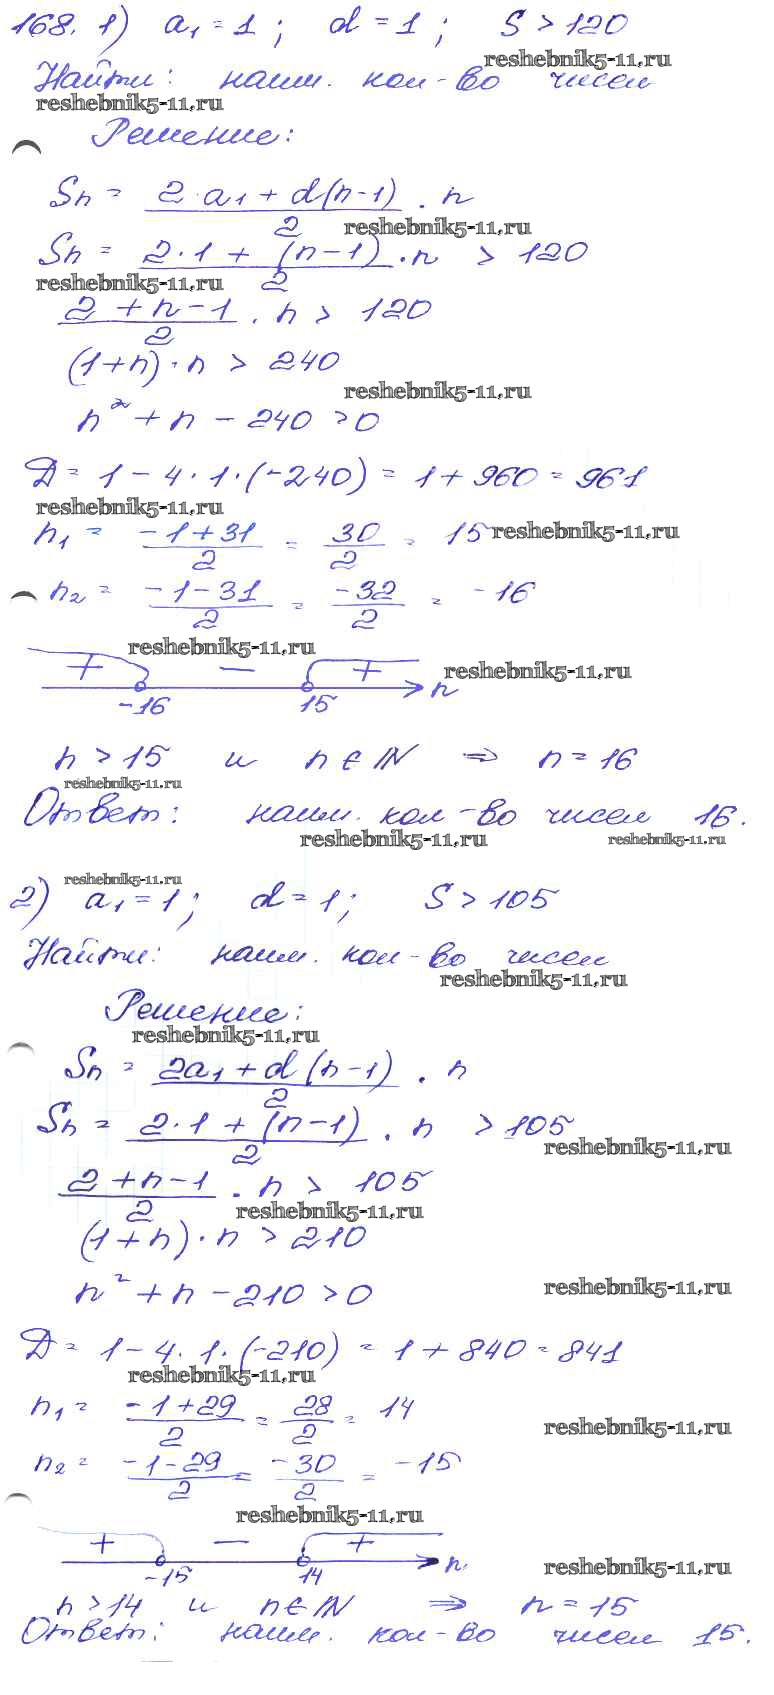 168. 1) a₁ = 1 ; d = 1 ; S > 120
reshebnik5-11.ru
Найти: наим. кол-во чисел
reshebnik5-11.ru
Решение:
Sn = (2·a₁ + d(n-1))/2 · n
reshebnik5-11.ru
Sn = (2·1 + (n-1))/2 · n > 120
reshebnik5-11.ru
(2 + n - 1)/2 · n > 120
(1+n)·n > 240
reshebnik5-11.ru
n² + n - 240 > 0
D = 1 - 4·1·(-240) = 1 + 960 = 961
reshebnik5-11.ru
n₁ = (-1+31)/2 = 30/2 = 15 reshebnik5-11.ru
n₂ = (-1-31)/2 = -32/2 = -16
reshebnik5-11.ru
+ − + n reshebnik5-11.ru
-16 15
n > 15 и n ∈ IN ⇒ n = 16
reshebnik5-11.ru
Ответ: наим. кол-во чисел 16.
reshebnik5-11.ru reshebnik5-11.ru
reshebnik5-11.ru
2) a₁ = 1; d = 1; S > 105
Найти: наим. кол-во чисел
reshebnik5-11.ru
Решение:
reshebnik5-11.ru
Sn = (2a₁ + d(n-1))/2 · n
Sn = (2·1 + (n-1))/2 · n > 105
reshebnik5-11.ru
(2 + n - 1)/2 · n > 105
reshebnik5-11.ru
(1+n)·n > 210
n² + n - 210 > 0 reshebnik5-11.ru
D = 1 - 4·1·(-210) = 1 + 840 = 841
reshebnik5-11.ru
n₁ = (-1+29)/2 = 28/2 = 14
reshebnik5-11.ru
n₂ = (-1-29)/2 = -30/2 = -15
reshebnik5-11.ru
+ − + n reshebnik5-11.ru
-15 14
n > 14 и n ∈ IN ⇒ n = 15
Ответ: наим. кол-во чисел 15.